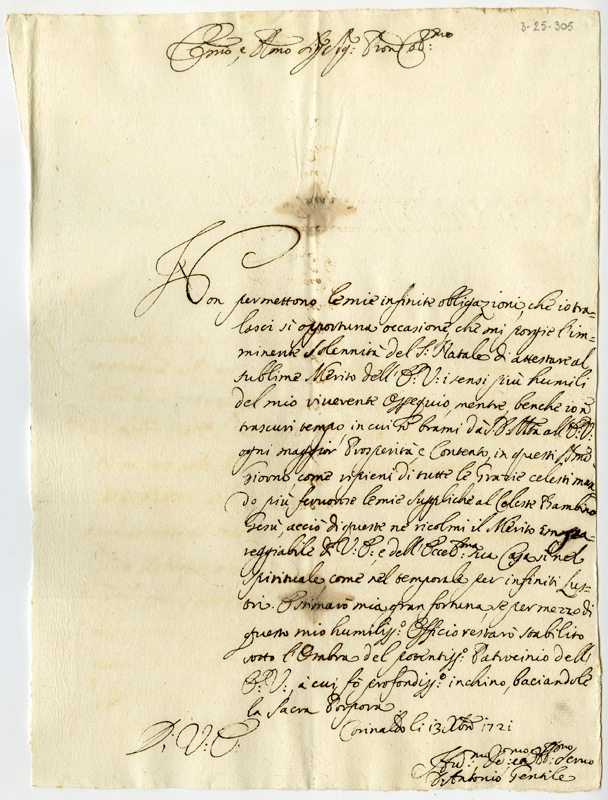 3-25-305
Em̃o, e Rmo Sig.r Sig.r Pron Col.mo
Non permettono le mie infinite obligazioni, che io tra-
lasci sì opportuna occasione che mi porgie l'im-
minente Solennità del S. Natale di attestare al
sublime Merito dell'E. V. i sensi più humili
del mio vivevente Ossequio, mentre, benche io ñ
trascuri tempo, in cui ñ brami dà S. D. Mtà all'E. V.
ogni maggior Prosperità e Contento, in questi
giorno come ripieni di tutte le Grazie celesti man-
do più fervorose le mie suppliche al Celeste Bambino
Gesù, acciò di queste ne ricolmi il Merito impa-
reggiabile di V. E., e dell'Eccell.ma sua Casa sì nel
spirituale come nel temporale per infiniti Lus-
tri. Estimarò mia gran fortuna, se per mezzo di
questo mio humiliss.o Officio restarò stabilito
sotto l'Ombra del potentiss.o Patrocinio dell'
E. V., à cui fò profondiss.o inchino, baciandole
la Sacra Porpora
Corinaldo li 13 Xbre 1721
Di V. E.
Hu.mo De.mo ed Obb.mo Servo
Antonio Gentile